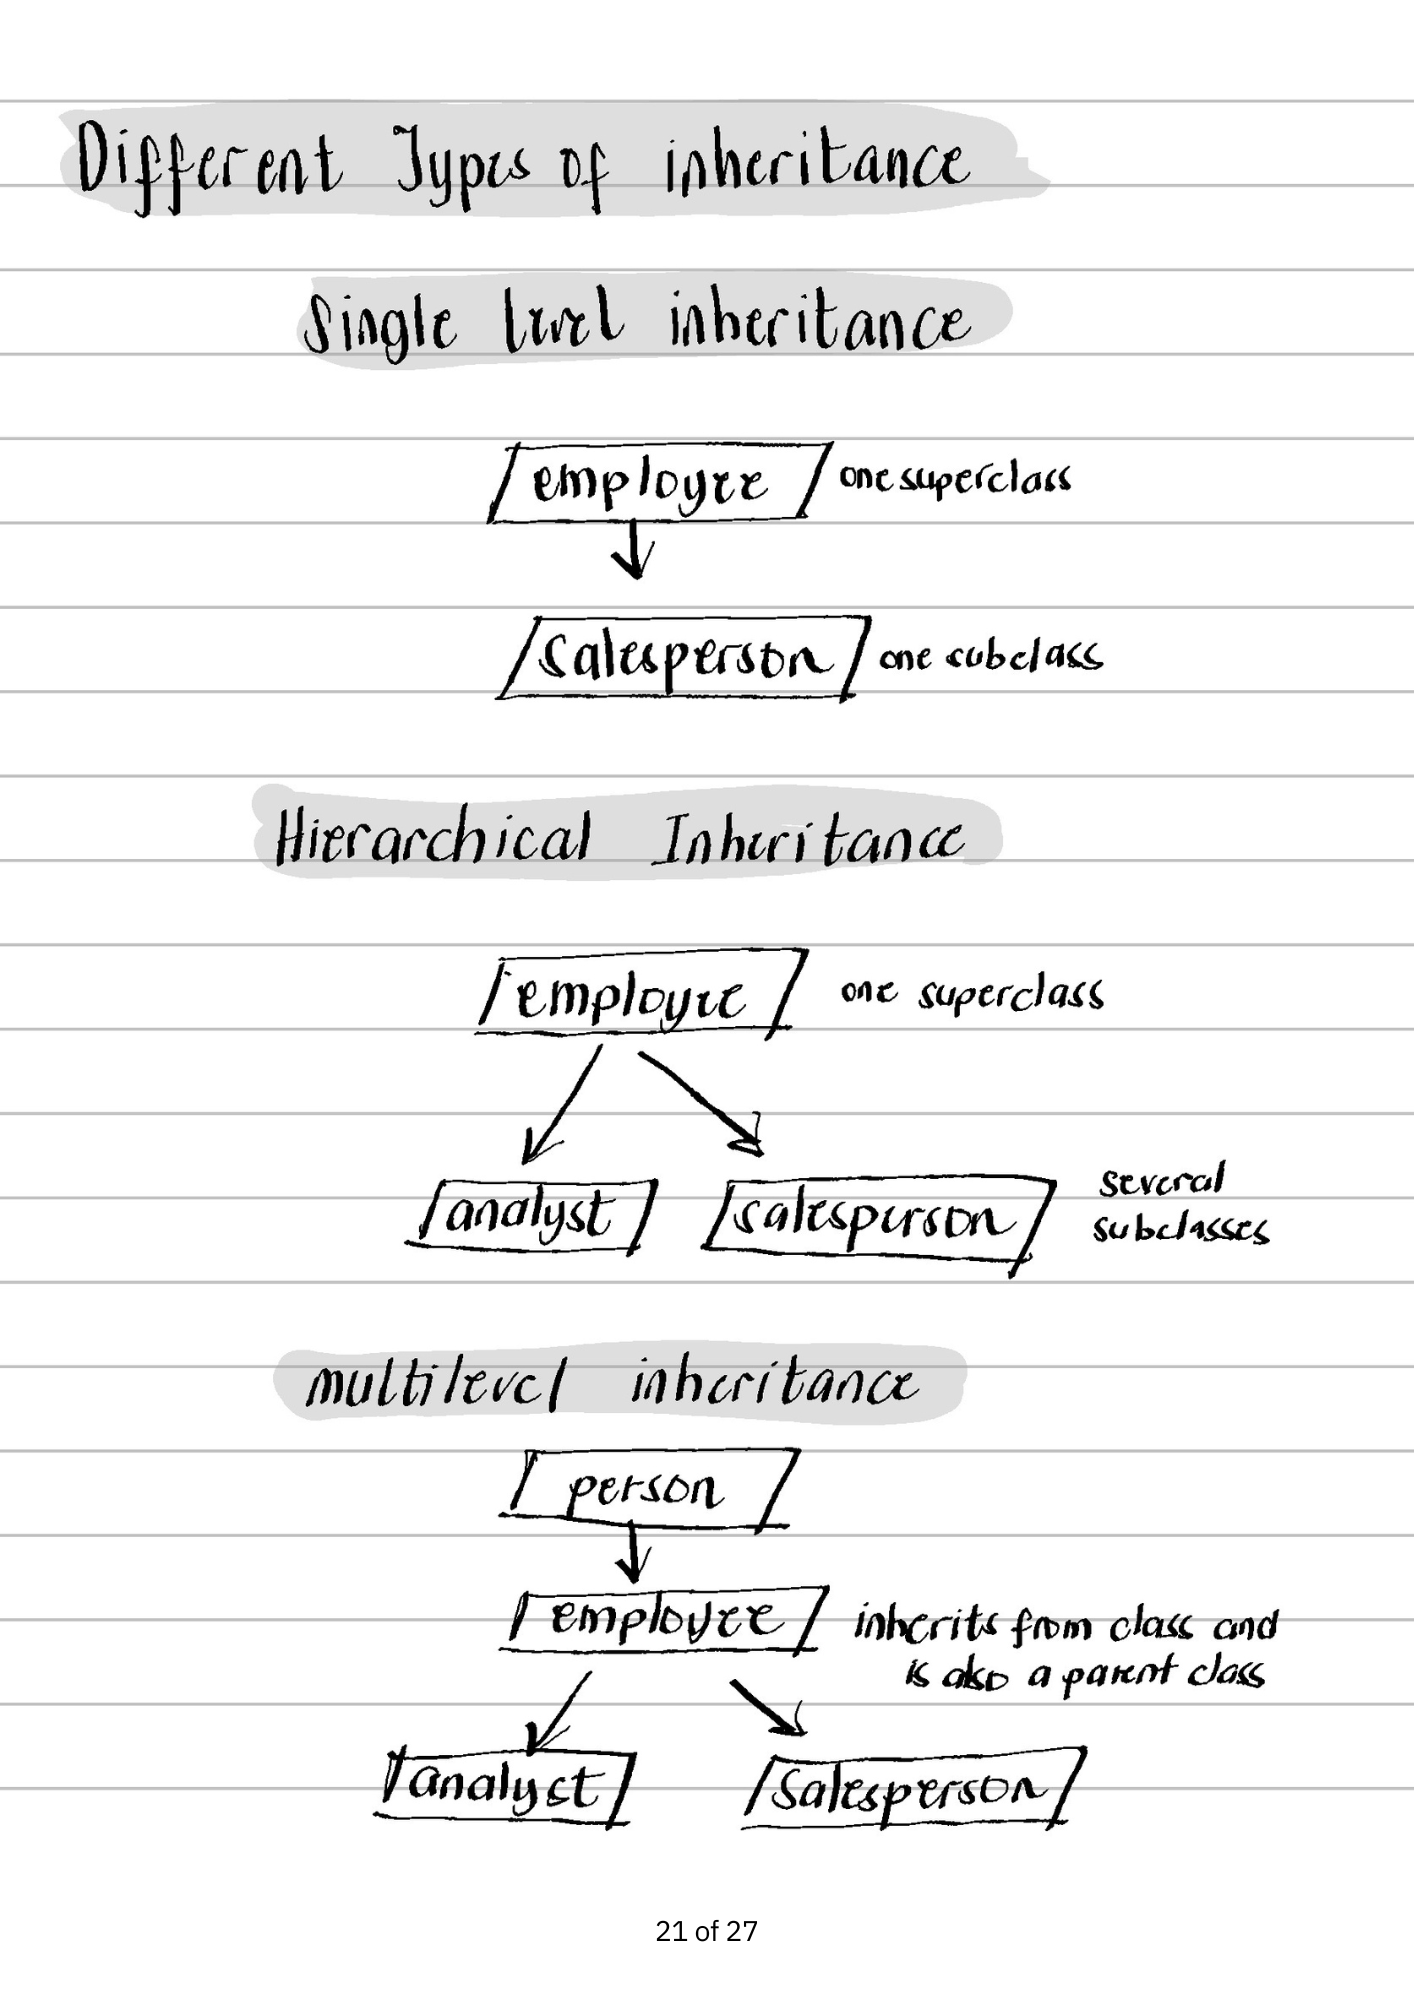 Different Types of inheritance
Single level inheritance
employee one superclass
salesperson one subclass
Hierarchical Inheritance
employee one superclass
analyst salesperson several
subclasses
multilevel inheritance
person
employee inherits from class and
is also a parent class
analyst salesperson
21 of 27